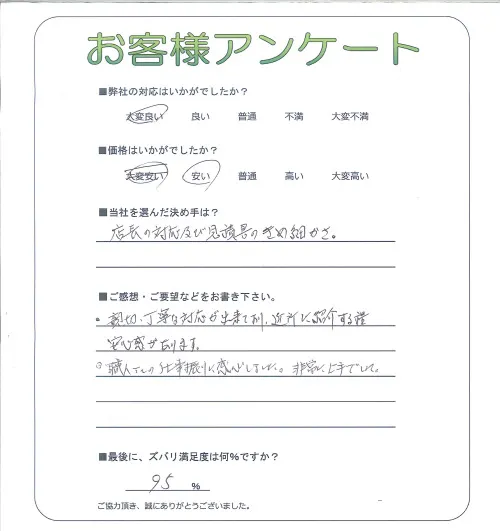 お客様アンケート
■弊社の対応はいかがでしたか？
大変良い 良い 普通 不満 大変不満
■価格はいかがでしたか？
大変安い 安い 普通 高い 大変高い
■当社を選んだ決め手は？
店長の対応及び見積書のきめ細かさ。
■ご感想・ご要望などをお書き下さい。
・親切、丁寧な対応が出来ており、近所に紹介する程
安心感があります。
○職人さんの仕事振りに感心しました。非常に上手でした。
■最後に、ズバリ満足度は何%ですか？
95 %
ご協力頂き、誠にありがとうございました。